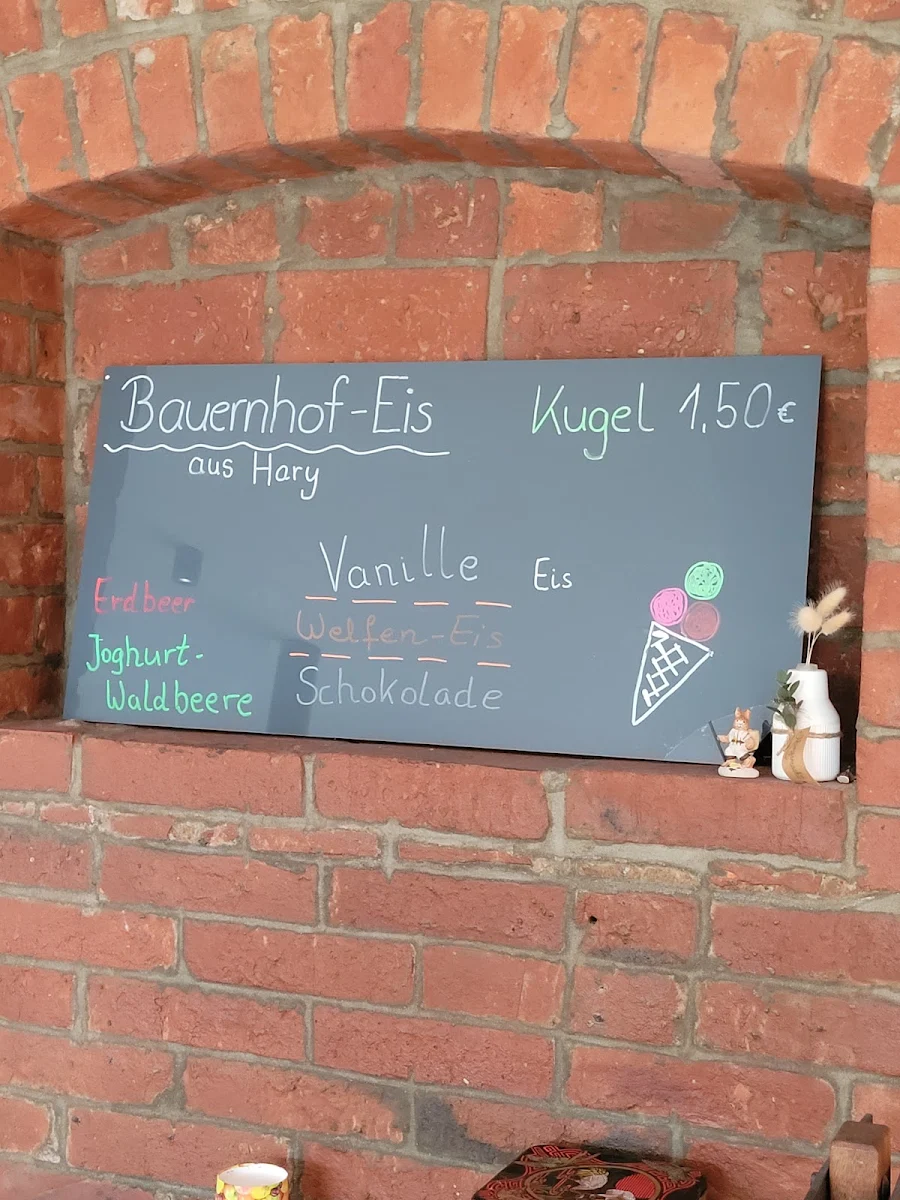 Bauernhof-Eis
aus Hary
Kugel 1,50€
Erdbeer
Joghurt-
Waldbeere
Vanille Eis
Welfen-Eis
Schokolade